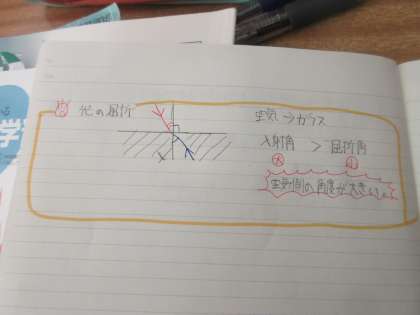 光の屈折
空気→ガラス
入射角 > 屈折角
大 小
空気側の角度が大きい
学